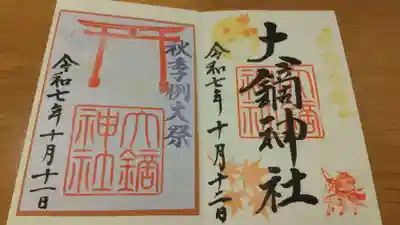 大鏑神社
令和七年十月十二日
大鏑神社
秋季例大祭
令和七年十月十一日
大鏑神社